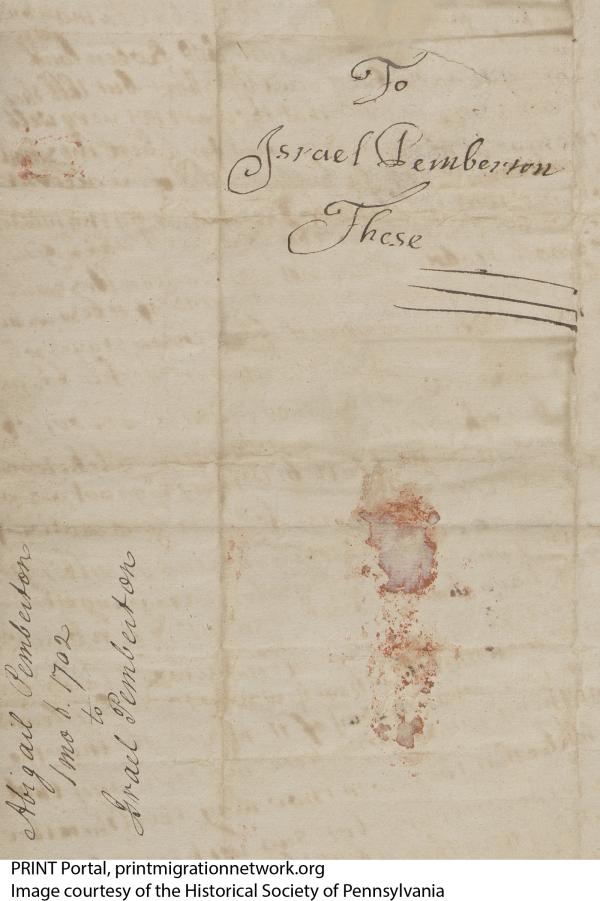 To
Israel Pemberton
These
Abigail Pemberton
1mo 6. 1702
to
Israel Pemberton
PRINT Portal, printmigrationnetwork.org
Image courtesy of the Historical Society of Pennsylvania